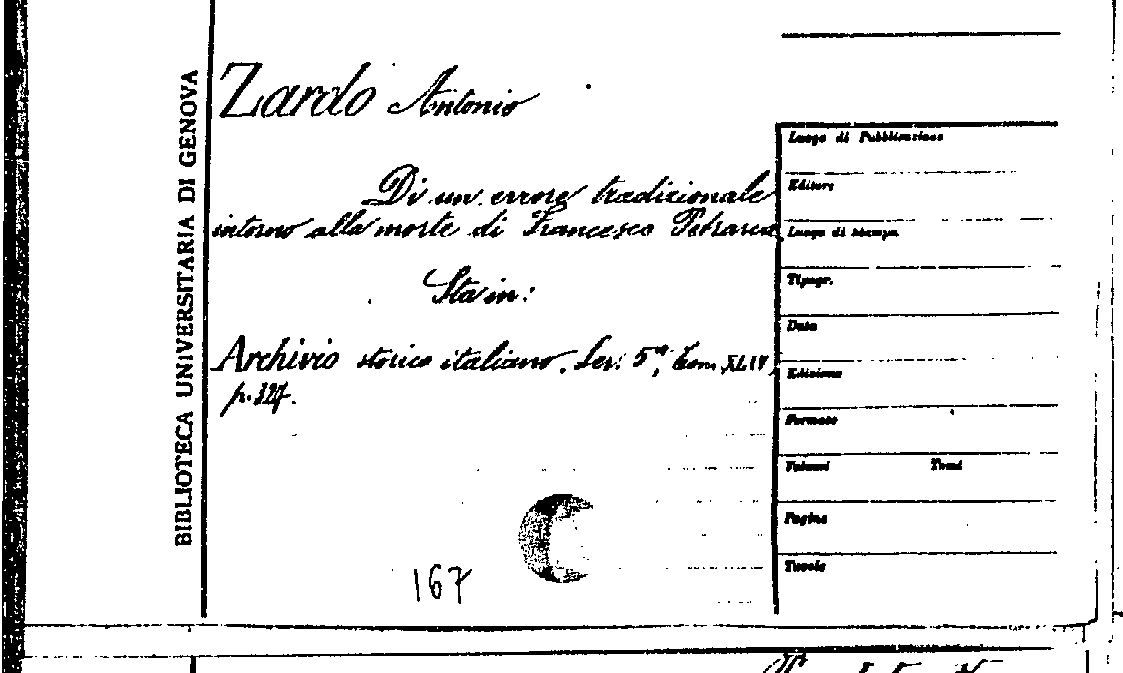 BIBLIOTECA UNIVERSITARIA DI GENOVA
Zardo Antonio
Di un errore tradizionale
intorno alla morte di Francesco Petrarca
Sta in:
Archivio storico italiano. Ser. 5ª, Tom. XLIV,
p. 327.
167
Luogo di Pubblicazione
Editore
Luogo di stampa
Tipogr.
Data
Edizione
Formato
Volumi Tomi
Pagine
Tavole